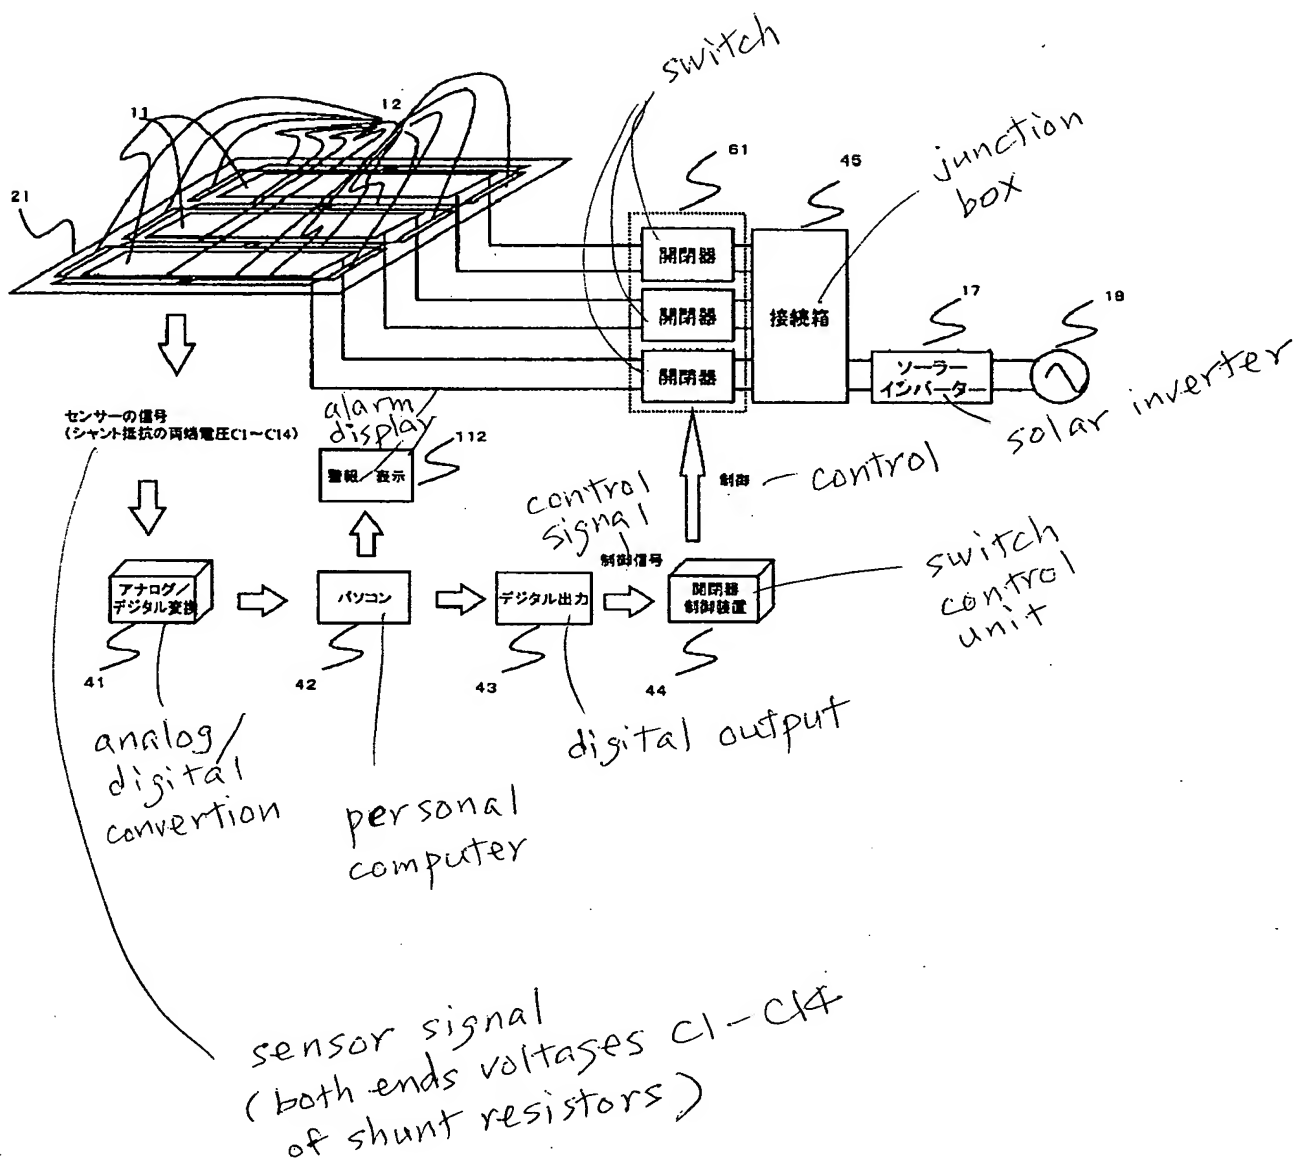 switch
11
12
61
45
junction
box
21
開閉器
開閉器
開閉器
接続箱
17
18
ソーラー
インバーター
solar inverter
センサーの信号
(シャント抵抗の両端電圧C1～C14)
alarm
display
112
警報／表示
control
signal
制御
control
制御信号
アナログ／
デジタル変換
パソコン
デジタル出力
開閉器
制御装置
switch
control
unit
41
42
43
44
analog/
digital
convertion
personal
computer
digital output
sensor signal
(both ends voltages C1-C14
of shunt resistors)